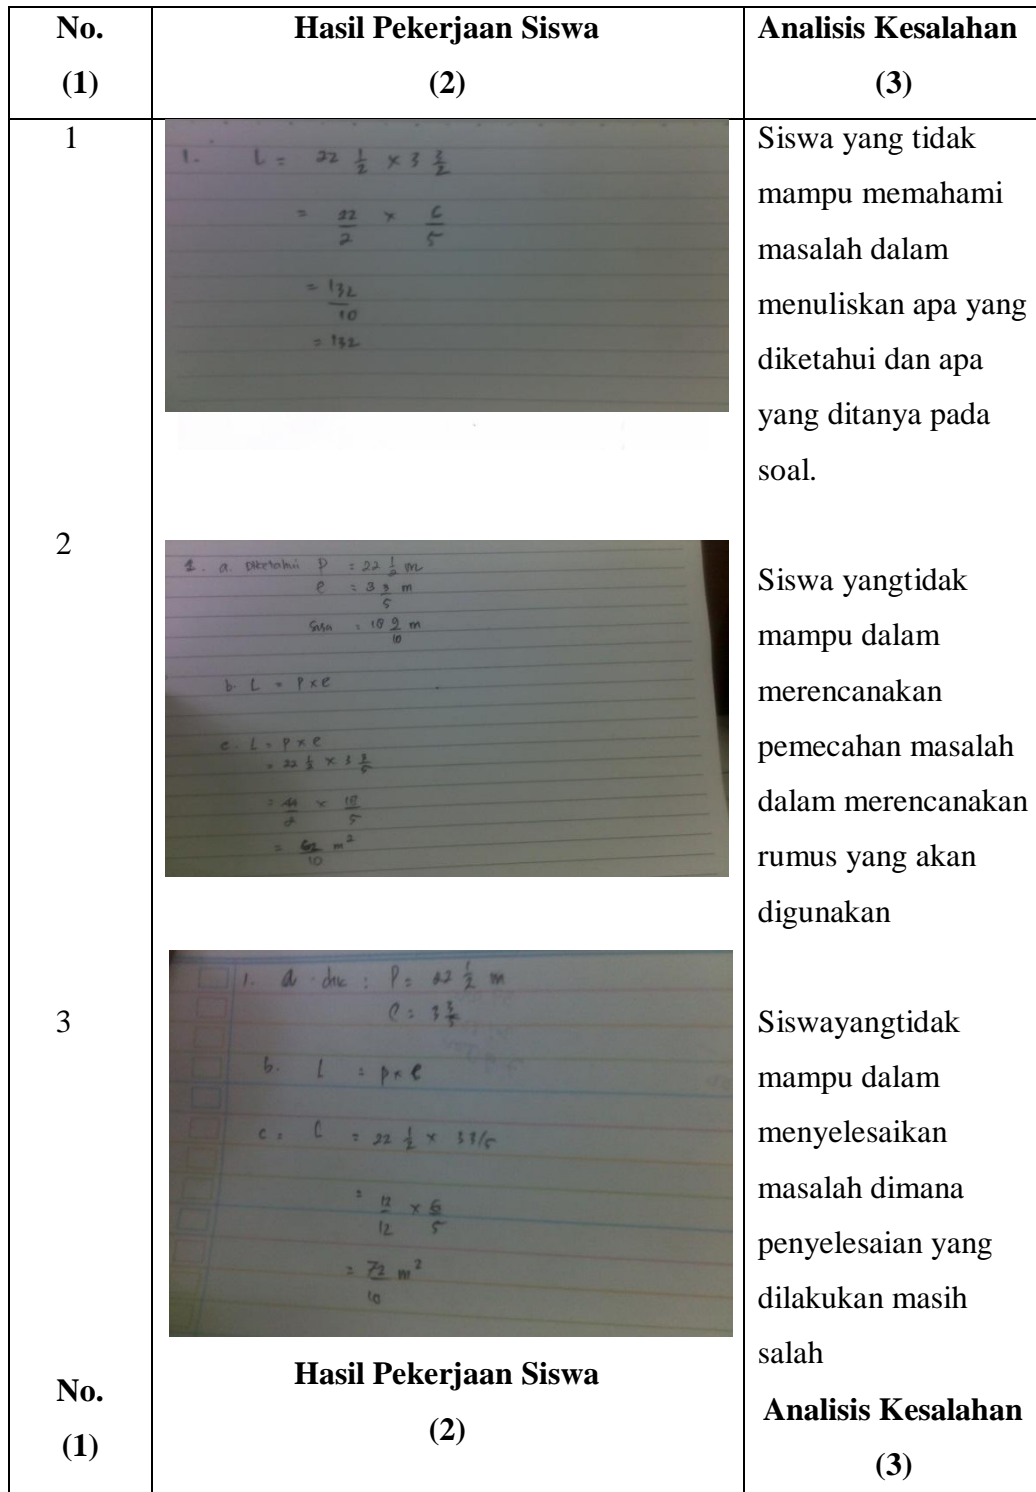 No.
(1)
Hasil Pekerjaan Siswa
(2)
Analisis Kesalahan
(3)
1
1. L = 22 1/2 × 3 3/2
= 22/2 × 6/5
= 132/10
= 132
Siswa yang tidak
mampu memahami
masalah dalam
menuliskan apa yang
diketahui dan apa
yang ditanya pada
soal.
2
1. a. Diketahui P = 22 1/2 m
l = 3 3/5 m
Sisa = 10 9/10 m
b. L = P x l
c. L = P x l
= 22 1/2 × 3 3/5
= 44/2 × 18/5
= 62/10 m²
Siswa yangtidak
mampu dalam
merencanakan
pemecahan masalah
dalam merencanakan
rumus yang akan
digunakan
3
1. a. dik : P = 22 1/2 m
l = 3 3/5
b. L = p x l
c = L = 22 1/2 × 3 3/5
= 12/12 × 6/5
= 72/10 m²
Siswayangtidak
mampu dalam
menyelesaikan
masalah dimana
penyelesaian yang
dilakukan masih
salah
No.
(1)
Hasil Pekerjaan Siswa
(2)
Analisis Kesalahan
(3)